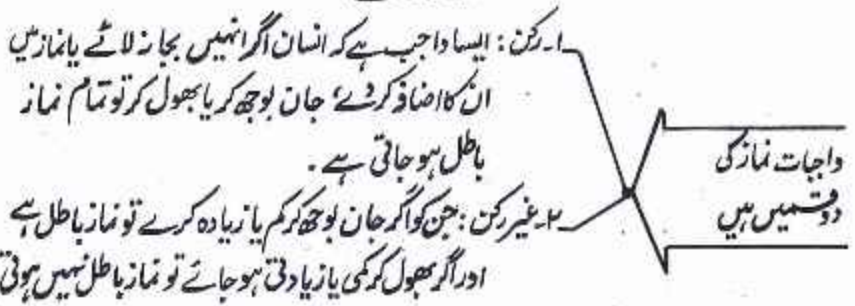 واجبات نماز کی
دو قسمیں ہیں
۱۔ رکن : ایسا واجب ہے کہ انسان اگر انہیں بجا نہ لائے یا نماز میں
ان کا اضافہ کر دے، جان بوجھ کر یا بھول کر تو تمام نماز
باطل ہو جاتی ہے۔
۲۔ غیر رکن : جن کو اگر جان بوجھ کر کم یا زیادہ کرے تو نماز باطل ہے
اور اگر بھول کر کمی یا زیادتی ہو جائے تو نماز باطل نہیں ہوتی